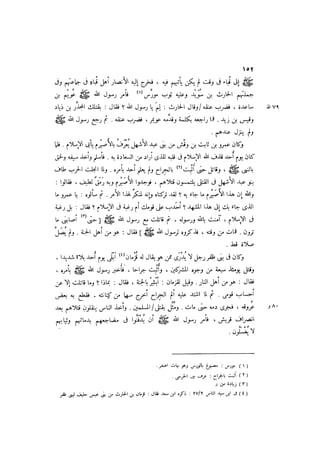 ١٥٢
إلى قُباء فى وقت لم يكن يأتيهم فيه ، فخرج إليه الأنصار أهل قُباء فى جماعتهم وفى
جملتهم الحارث بن سُوَيْد وعليه ثوب مورَّس (١) فأمر رسول الله ﷺ عُوَيْم بن
ساعدة ، فضرب عنقه / وقال الحارث : لِمَ يا رسول الله ؟ فقال : بقتلك المجذَّر بن ذياد ٧٩ ظ
وقيس بن زيد . فما راجعه بكلمة وقدَّمه عويم ، فضرب عنقه . ثم رجع رسول الله ﷺ
ولم ينزل عندهم .
وكان عمرو بن ثابت بن وَقْش من بنى عبد الأشهل يُعْرَفُ بالأُصَيْرِم يأبى الإسلام . فلما
كان يوم أحد قذف الله الإسلام فى قلبه للذى أراد من السعادة به . فأسلم وأخذ سيفه ولحق
بالنبى ﷺ ، وقاتل حتى أُثْبِت (٢) بالجراح ولم يعلم أحد بأمره . ولما انجلت الحرب طاف
بنو عبد الأشهل فى القتلى يلتمسون قتلاهم . فوجدوا الأُصَيْرِم وبه رمق لطيف ، فقالوا :
والله إن هذا الأُصَيْرِم ما جاء به ؟ لقد تركناه وإنه لمنكر لهذا الأمر . ثم سألوه : يا عمرو ما
الذى جاء بك إلى هذا المشهد ؟ أحَدَب على قومك أم رغبة فى الإسلام ؟ فقال : بل رغبة
فى الإسلام ، آمنت بالله ورسوله ، ثم قاتلت مع رسول الله ﷺ [ حتى ](٣) أصابنى ما
ترون . فمات من وقته ، فذكروه لرسول الله ﷺ فقال : هو من أهل الجنة . ولم يُصَلِّ
صلاة قط .
وكان فى بنى ظفر رجل لا يُدْرَى ممن هو يقال له قُزْمان (٤) أبلى يوم أحد بلاء شديدا ،
وقتل يومئذ سبعة من وجوه المشركين ، وأُثْبِت جراحا ، فأُخبر رسول الله ﷺ بأمره ،
فقال : هو من أهل النار . وقيل لقزمان : أبشر بالجنة ، فقال : بماذا ؟ وما قاتلت إلا عن
أحساب قومى . ثم لما اشتد عليه ألم الجراح أخرج سهما من كنانته ، فقطع به بعض
عروقه ، فجرى دمه حتى مات . ومُثِّل بقتلى / المسلمين . وأخذ الناس ينقلون قتلاهم بعد ٨٠ و
انصراف قريش ، فأمر رسول الله ﷺ أن يُدفنوا فى مضاجعهم بدمائهم وثيابهم
لا يُغَسَّلون .
(١) مورس : مصبوغ بالورس وهو نبات أصفر .
(٢) أثبت بالجراح :
(٣) زيادة من ر